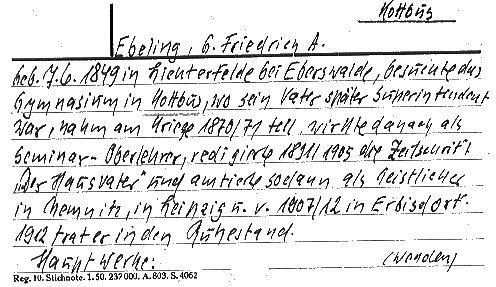 Kottbus
Ebeling, G. Friedrich A.
geb. 7.6.1849 in Lichterfelde bei Eberswalde, besuchte das
Gymnasium in Kottbus, wo sein Vater später Superintendent
war, nahm am Kriege 1870/71 teil, wirkte danach als
Seminar-Oberlehrer, redigierte 1891/1905 die Zeitschrift
"Der Hausvater" und amtierte sodann als Geistlicher
in Chemnitz, in Leipzig u. v. 1907/12 in Erbisdorf.
1912 trat er in den Ruhestand.
Hauptwerke: (Wenden)
Reg. 10. Stichnote. 1.50. 237000. A. 803. S. 4062